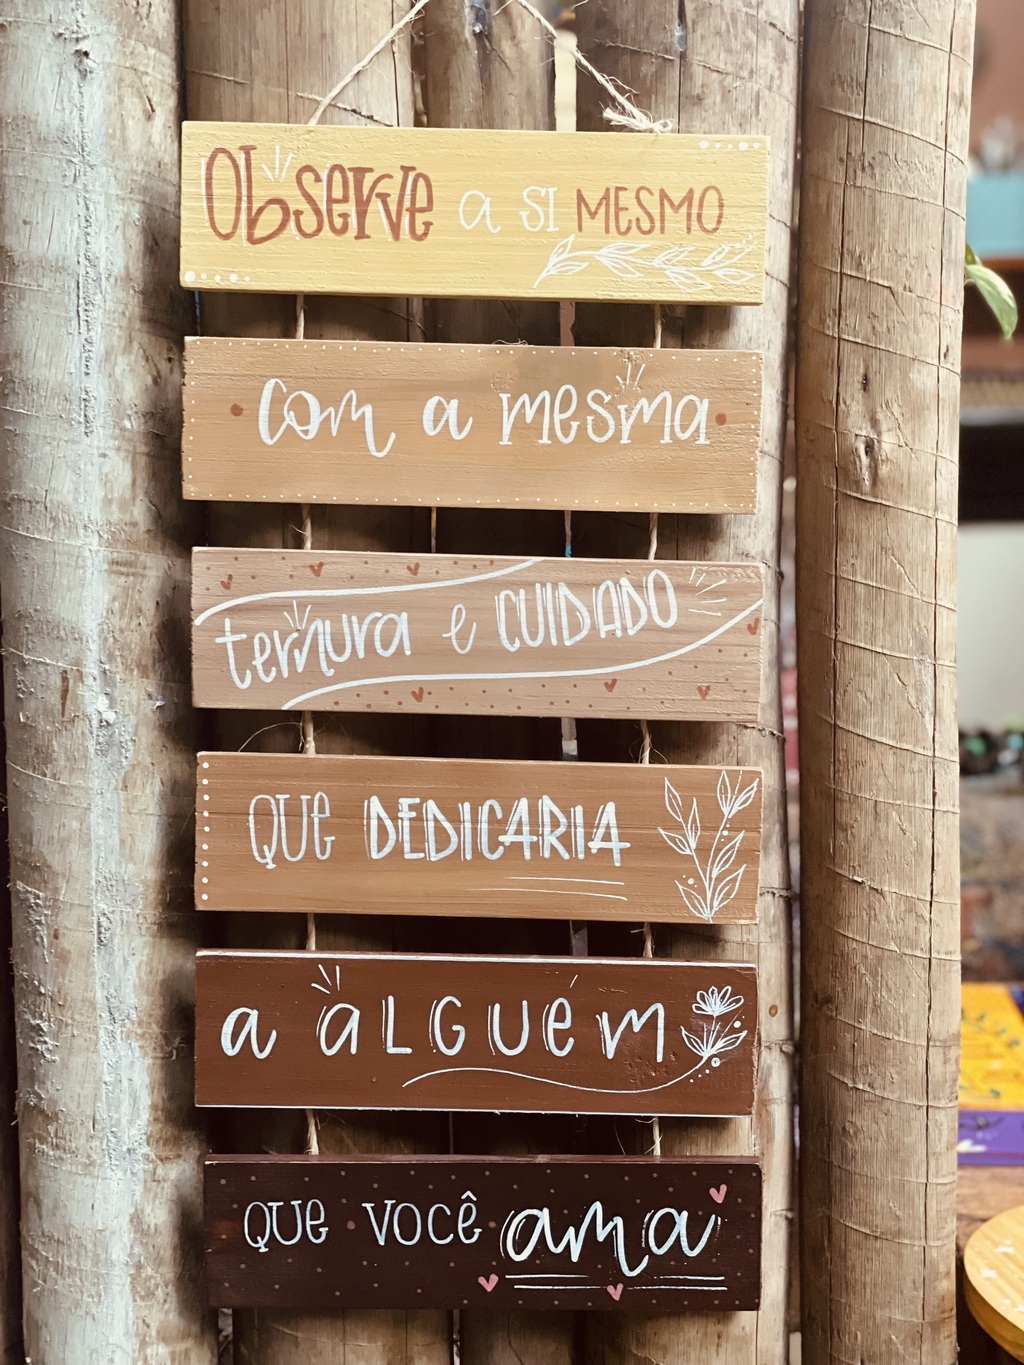 Observe a si MESMO
com a mesma
ternura e CUIDADO
QUE DEDICARIA
a ALGUÉM
QUE VOCÊ ama